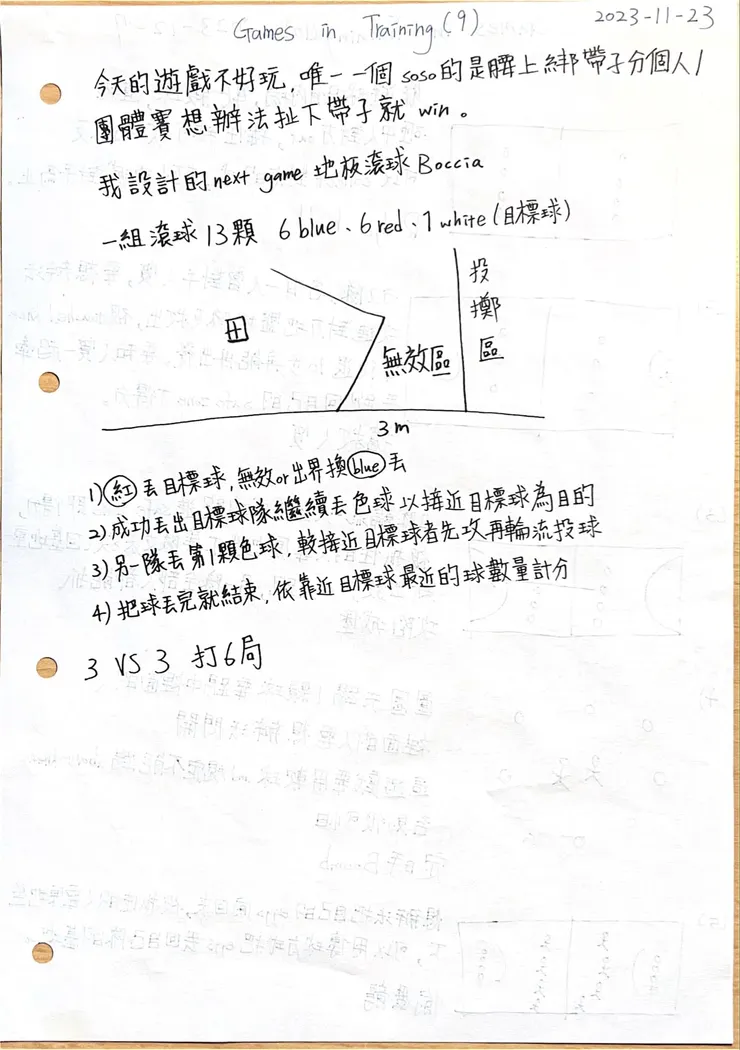 Games in Training(9)
2023-11-23
今天的遊戲不好玩,唯一一個 soso的是腰上綁帶子分個人/
團體賽想辦法扯下帶子就 win。
我設計的next game 地板滾球 Boccia
一組滾球13顆 6 blue、6 red、1 white(目標球)
投擲區
無效區
3m
1)紅丟目標球,無效or出界換blue丟
2)成功丟出目標球隊繼續丟色球以接近目標球為目的
3)另一隊丟第1顆色球,較接近目標球者先攻再輪流投球
4)把球丟完就結束,依靠近目標球最近的球數量計分
3 VS 3 打6局